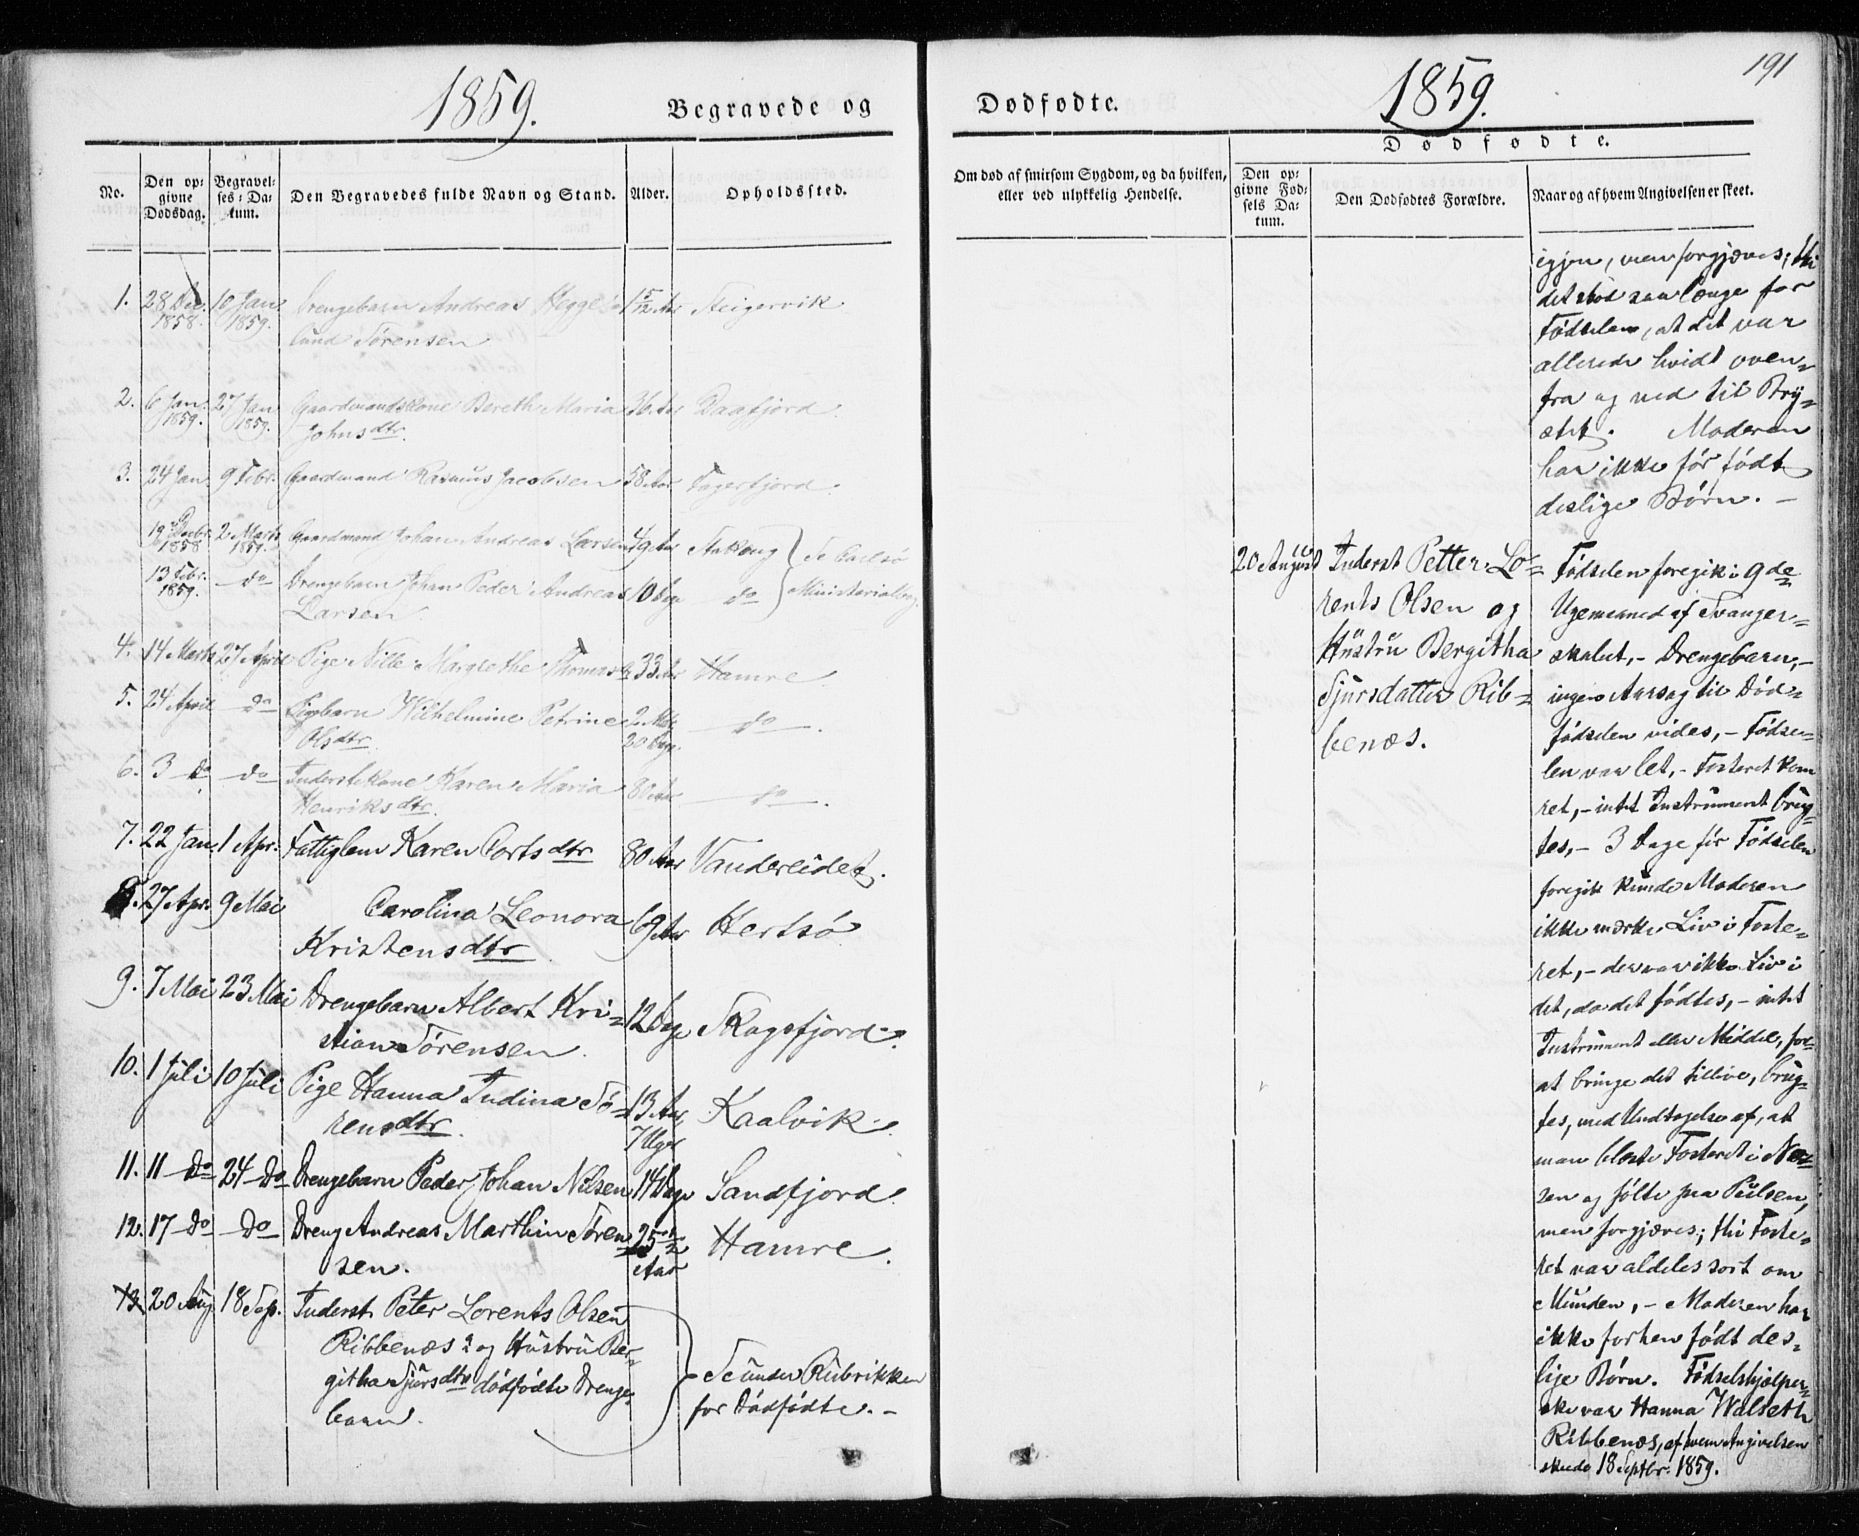 1859.
Begravede og
No.
Den op-
givne
Dødsdag.
Begravel-
ses-Da-
tum.
Den Begravedes fulde Navn og Stand.
Alder.
Opholdssted.
1. 28 Dec. 1858. 10 Jan 1859. Drengebarn Andreas Hegge-
lund Sørensen 1 5/12 Aar Steigervik
2. 6 Jan. 1859. 27 Jan 1859. Gaardmandskone Bereth Maria 36 Aar Daafjord.
Johnsdtr.
3. 24 Jan 9 Febr. Gaardmand Rasmus Jacobsen 58 Aar Tagerfjord.
19 Decbr. 1858 2 Marts 1859. Gaardmand Johan Andreas Larsen 49 Aar Stakvug Se Carlsø
13 Febr. 1859. do Drengebarn Johan Peder Andreas 10 Dage do Ministerialbog
Larsen
4. 14 Marts 27 April Pige Nille Margrethe Thomasdtr 33 Aar Hamre
5. 24 April do Pigebarn Wilhelmine Petrine 2 Mdr. do
Olsdtr 20 Dage.
6. 3 do do Inderstkone Karen Maria 80 Aar do
Henriksdtr.
7. 22 Jan. 1 Apr. Fattiglem Karen Cortsdtr 80 Aar Vandereidet.
8. 27 Apr. 9 Mai Carolina Leonora 69 Aar Hersø
Kristensdtr
9. 7 Mai 23 Mai Drengebarn Albert Kri-
stian Sørensen 12 Dage Skogsfjord.
10. 1 Juli 10 Juli Pige Hanna Indina Sø-
rensdtr. 13 Aar, 7 Uger Kaalvik.
11. 11 do 24 do Drengebarn Peder Johan Nilsen 14 Dage Sandfjord.
12. 17 do do Dreng Andreas Marthin Søren-
sen. Aar Hamre.
13 20 Aug 18 Sep. Inderst Peter Lorents Olsen
Ribbenæs og Hustru Ber-
githa Sjursdtr dødfødte Drenge-
barn.
Se under Rubrikken
for Dødfødte. -
191
Dødfødte.
1859.
Om død af smitsom Sygdom, og da hvilken,
eller ved ulykkelig Hendelse.
Dødfødte.
Den op-
givne Fød-
sels Da-
tum.
Den Dødfødtes Forældre.
Naar og af hvem Angivelsen er skeet.
igjen, men forgjæves; thi
det stod saa længe for
Fødselen, at det var
allerede hvidt oven-
fra og ned til Bry-
stet. Moderen
har ikke før født
deslige Børn. -
20 August
Inderst Petter Lo-
rents Olsen og
Hustru Bergitha
Sjursdatter Rib-
benæs.
Fødselen foregik i 9de
Ugemaaned af Svanger-
skabet, - Drengebarn, -
ingen Aarsag til Død-
fødselen vides, - Fødse-
len var let, - Fosteret kom
ret, - intet Instrument brug-
tes, - 3 Dage før Fødselen
foregik kunde Moderen
ikke mærke Liv i Foste-
ret, - der var ikke Liv i
det, da det fødtes, - intet
Instrument eller Middel, for
at bringe det tillive, brug-
tes, med Undtagelse af, at
man blæste Fosteret i Næ-
sen og følte paa Pulsen,
men forgjæves; thi Foste-
ret var aldeles sort om
Munden, - Moderen har
ikke forhen født des-
lige Børn. Fødselshjelper-
ske var Hanna Walseth
Ribbenæs, af hvem Angivelsen
skede 18 Septbr. 1859.